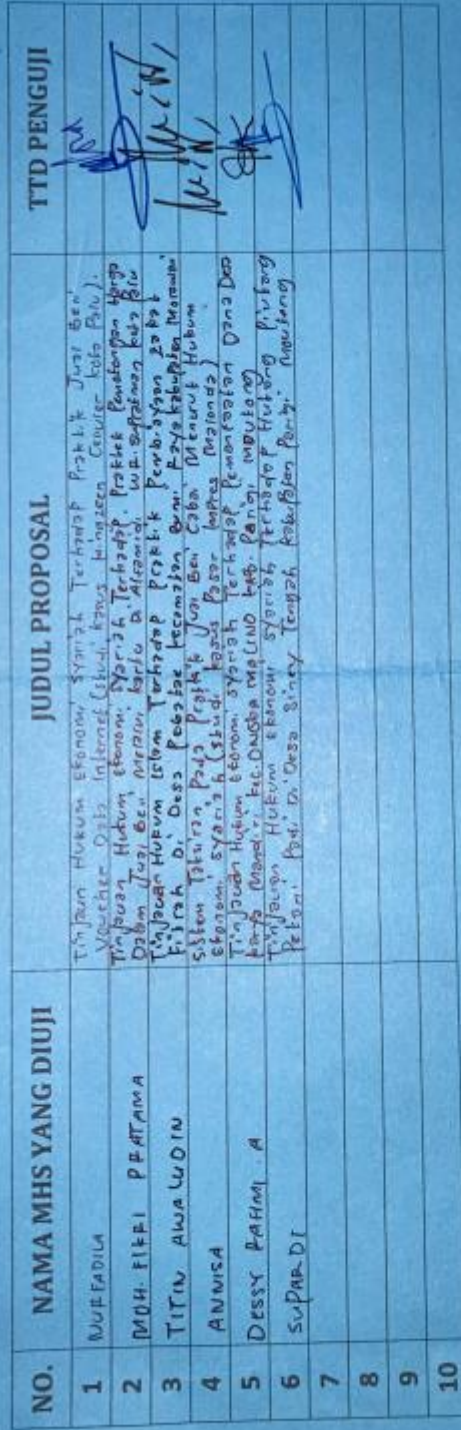 NO. NAMA MHS YANG DIUJI JUDUL PROPOSAL TTD PENGUJI
1 NURFADILA Tinjaun Hukum Ekonomi Syariah Terhadap Praktik Jual Beli
Voucher Data Internet (studi kasus Center kota Palu).
2 MOH. FIKRI PRATAMA Tinjauan Hukum Ekonomi Syariah Terhadap. Praktek Pematongan Harga
Dalam Jual Beli Melalui kartu Di Alfamidi WR. Supratman kota Palu
3 TITIN AWALUDIN Tinjauan Hukum Islam Terhadap Praktik Pembayaran Zakat
Fitrah Di Desa kecamatan Bumi Raya kabupaten Morowali
4 ANNISA Sistem Takaran Pada Praktik Jual Beli Cabai Menurut Hukum
Ekonomi Syariah (studi kasus Pasar Inpres Malonda)
5 DESSY RAHMI. A Tinjauan Hukum Ekonomi Syariah Terhadap Pemanfaatan Dana Desa
karya Mandiri kec. ONGKA MALINO kab. Parigi Moutong
6 SUPARDI Tinjauan Hukum Ekonomi Syariah Terhadap Hutang Piutang
Petani Padi Di Desa Siney Tengah kabupaten Parigi Moutong
7
8
9
10